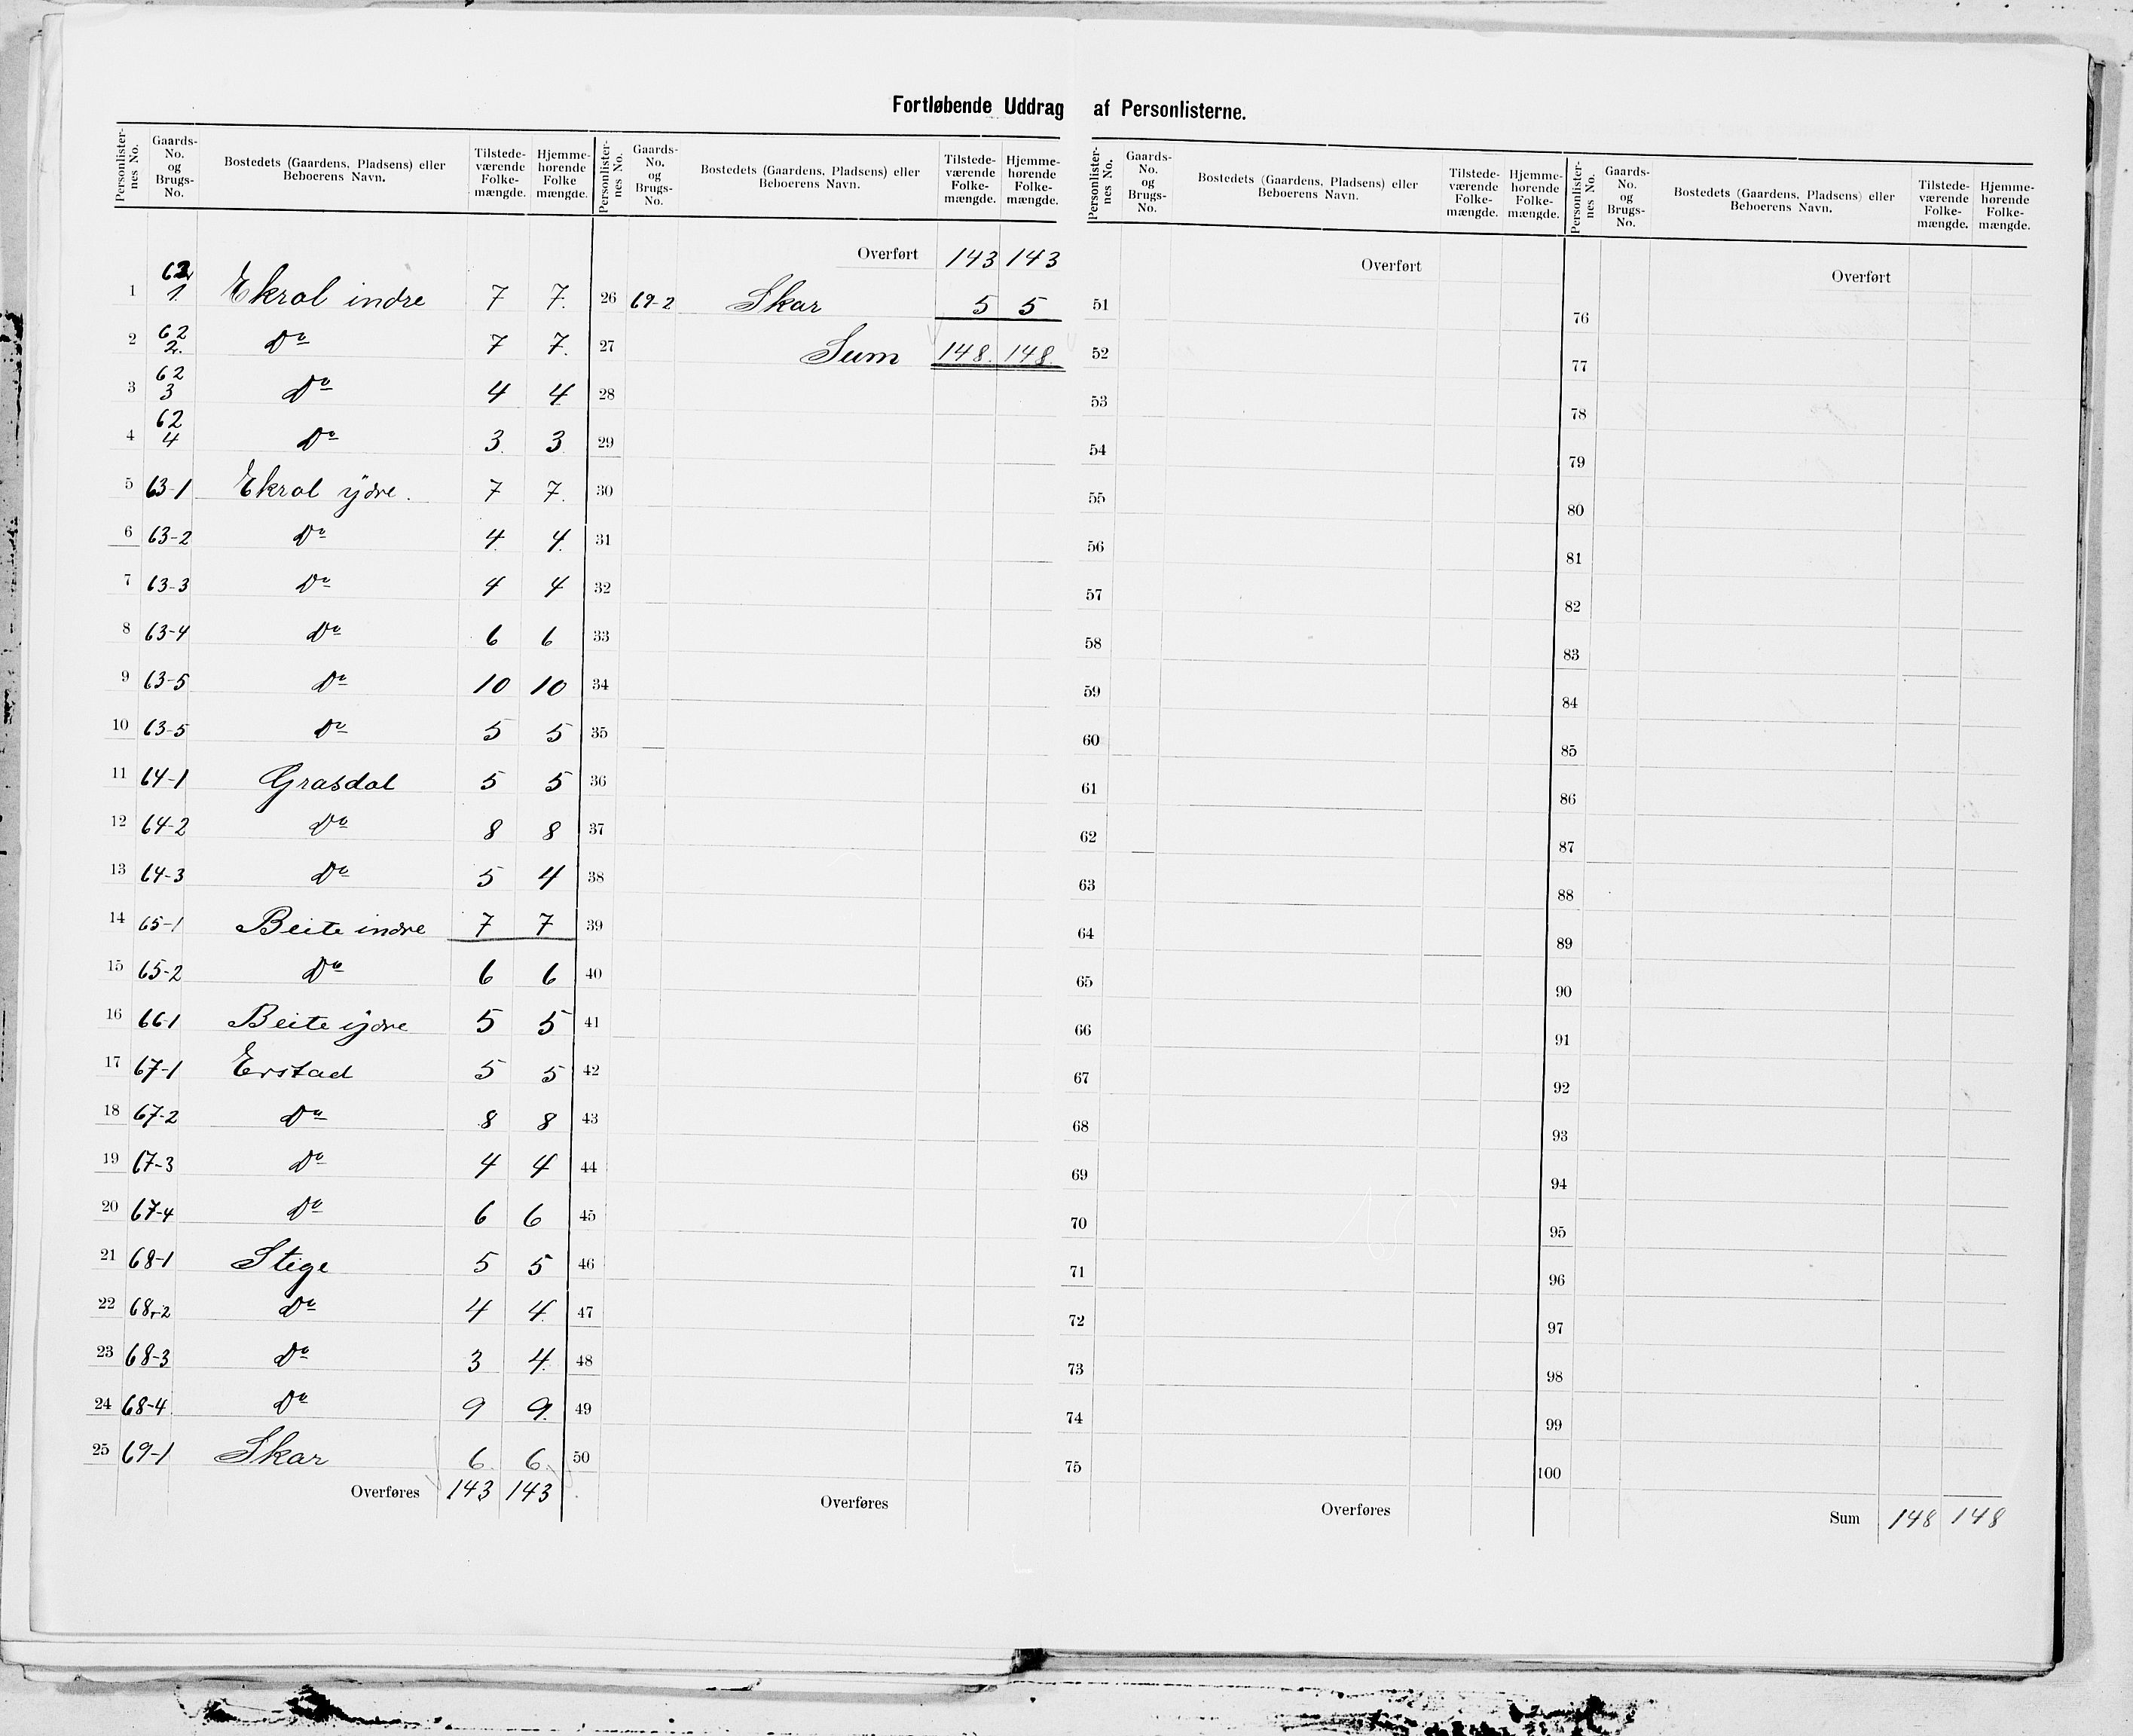 Fortløbende Uddrag af Personlisterne.
Personlister-nes No. Gaards-No. og Brugs-No. Bostedets (Gaardens, Pladsens) eller Beboerens Navn. Tilstede-værende Folke-mængde. Hjemme-hørende Folke mængde.
1 62 1. Ekrol indre 7 7.
2 62 2. Do 7 7.
3 62 3 Do 4 4
4 62 4 Do 3 3
5 63-1 Ekrol ydre. 7 7.
6 63-2 Do 4 4.
7 63-3 Do 4 4
8 63-4 Do 6 6
9 63-5 Do 10 10
10 63-5 Do 5 5
11 64-1 Grasdal 5 5
12 64-2 Do 8 8
13 64-3 Do 5 4
14 65-1 Beite indre 7 7
15 65-2 Do 6 6
16 66-1 Beite ydre 5 5
17 67-1 Erstad 5 5
18 67-2 Do 8 8
19 67-3 Do 4 4
20 67-4 Do 6 6
21 68-1 Stige 5 5
22 68-2 Do 4 4.
23 68-3 Do 3 4.
24 68-4 Do 9 9.
25 69-1 Skar 6 6
Overføres 143 143
Personlister-nes No. Gaards-No. og Brugs-No. Bostedets (Gaardens, Pladsens) eller Beboerens Navn. Tilstede-værende Folke-mængde. Hjemme-hørende Folke-mængde.
Overført 143 143
26 69-2 Skar 5 5
27 Sum 148. 148.
28
29
30
31
32
33
34
35
36
37
38
39
40
41
42
43
44
45
46
47
48
49
50
Overføres
Personlister-nes No. Gaards-No. og Brugs-No. Bostedets (Gaardens, Pladsens) eller Beboerens Navn. Tilstede-værende Folke-mængde. Hjemme-hørende Folke-mængde.
Overført
51
52
53
54
55
56
57
58
59
60
61
62
63
64
65
66
67
68
69
70
71
72
73
74
75
Overføres
Personlister-nes No. Gaards-No. og Brugs-No. Bostedets (Gaardens, Pladsens) eller Beboerens Navn. Tilstede-værende Folke-mængde. Hjemme-hørende Folke-mængde.
Overført
76
77
78
79
80
81
82
83
84
85
86
87
88
89
90
91
92
93
94
95
96
97
98
99
100
Sum 148 148